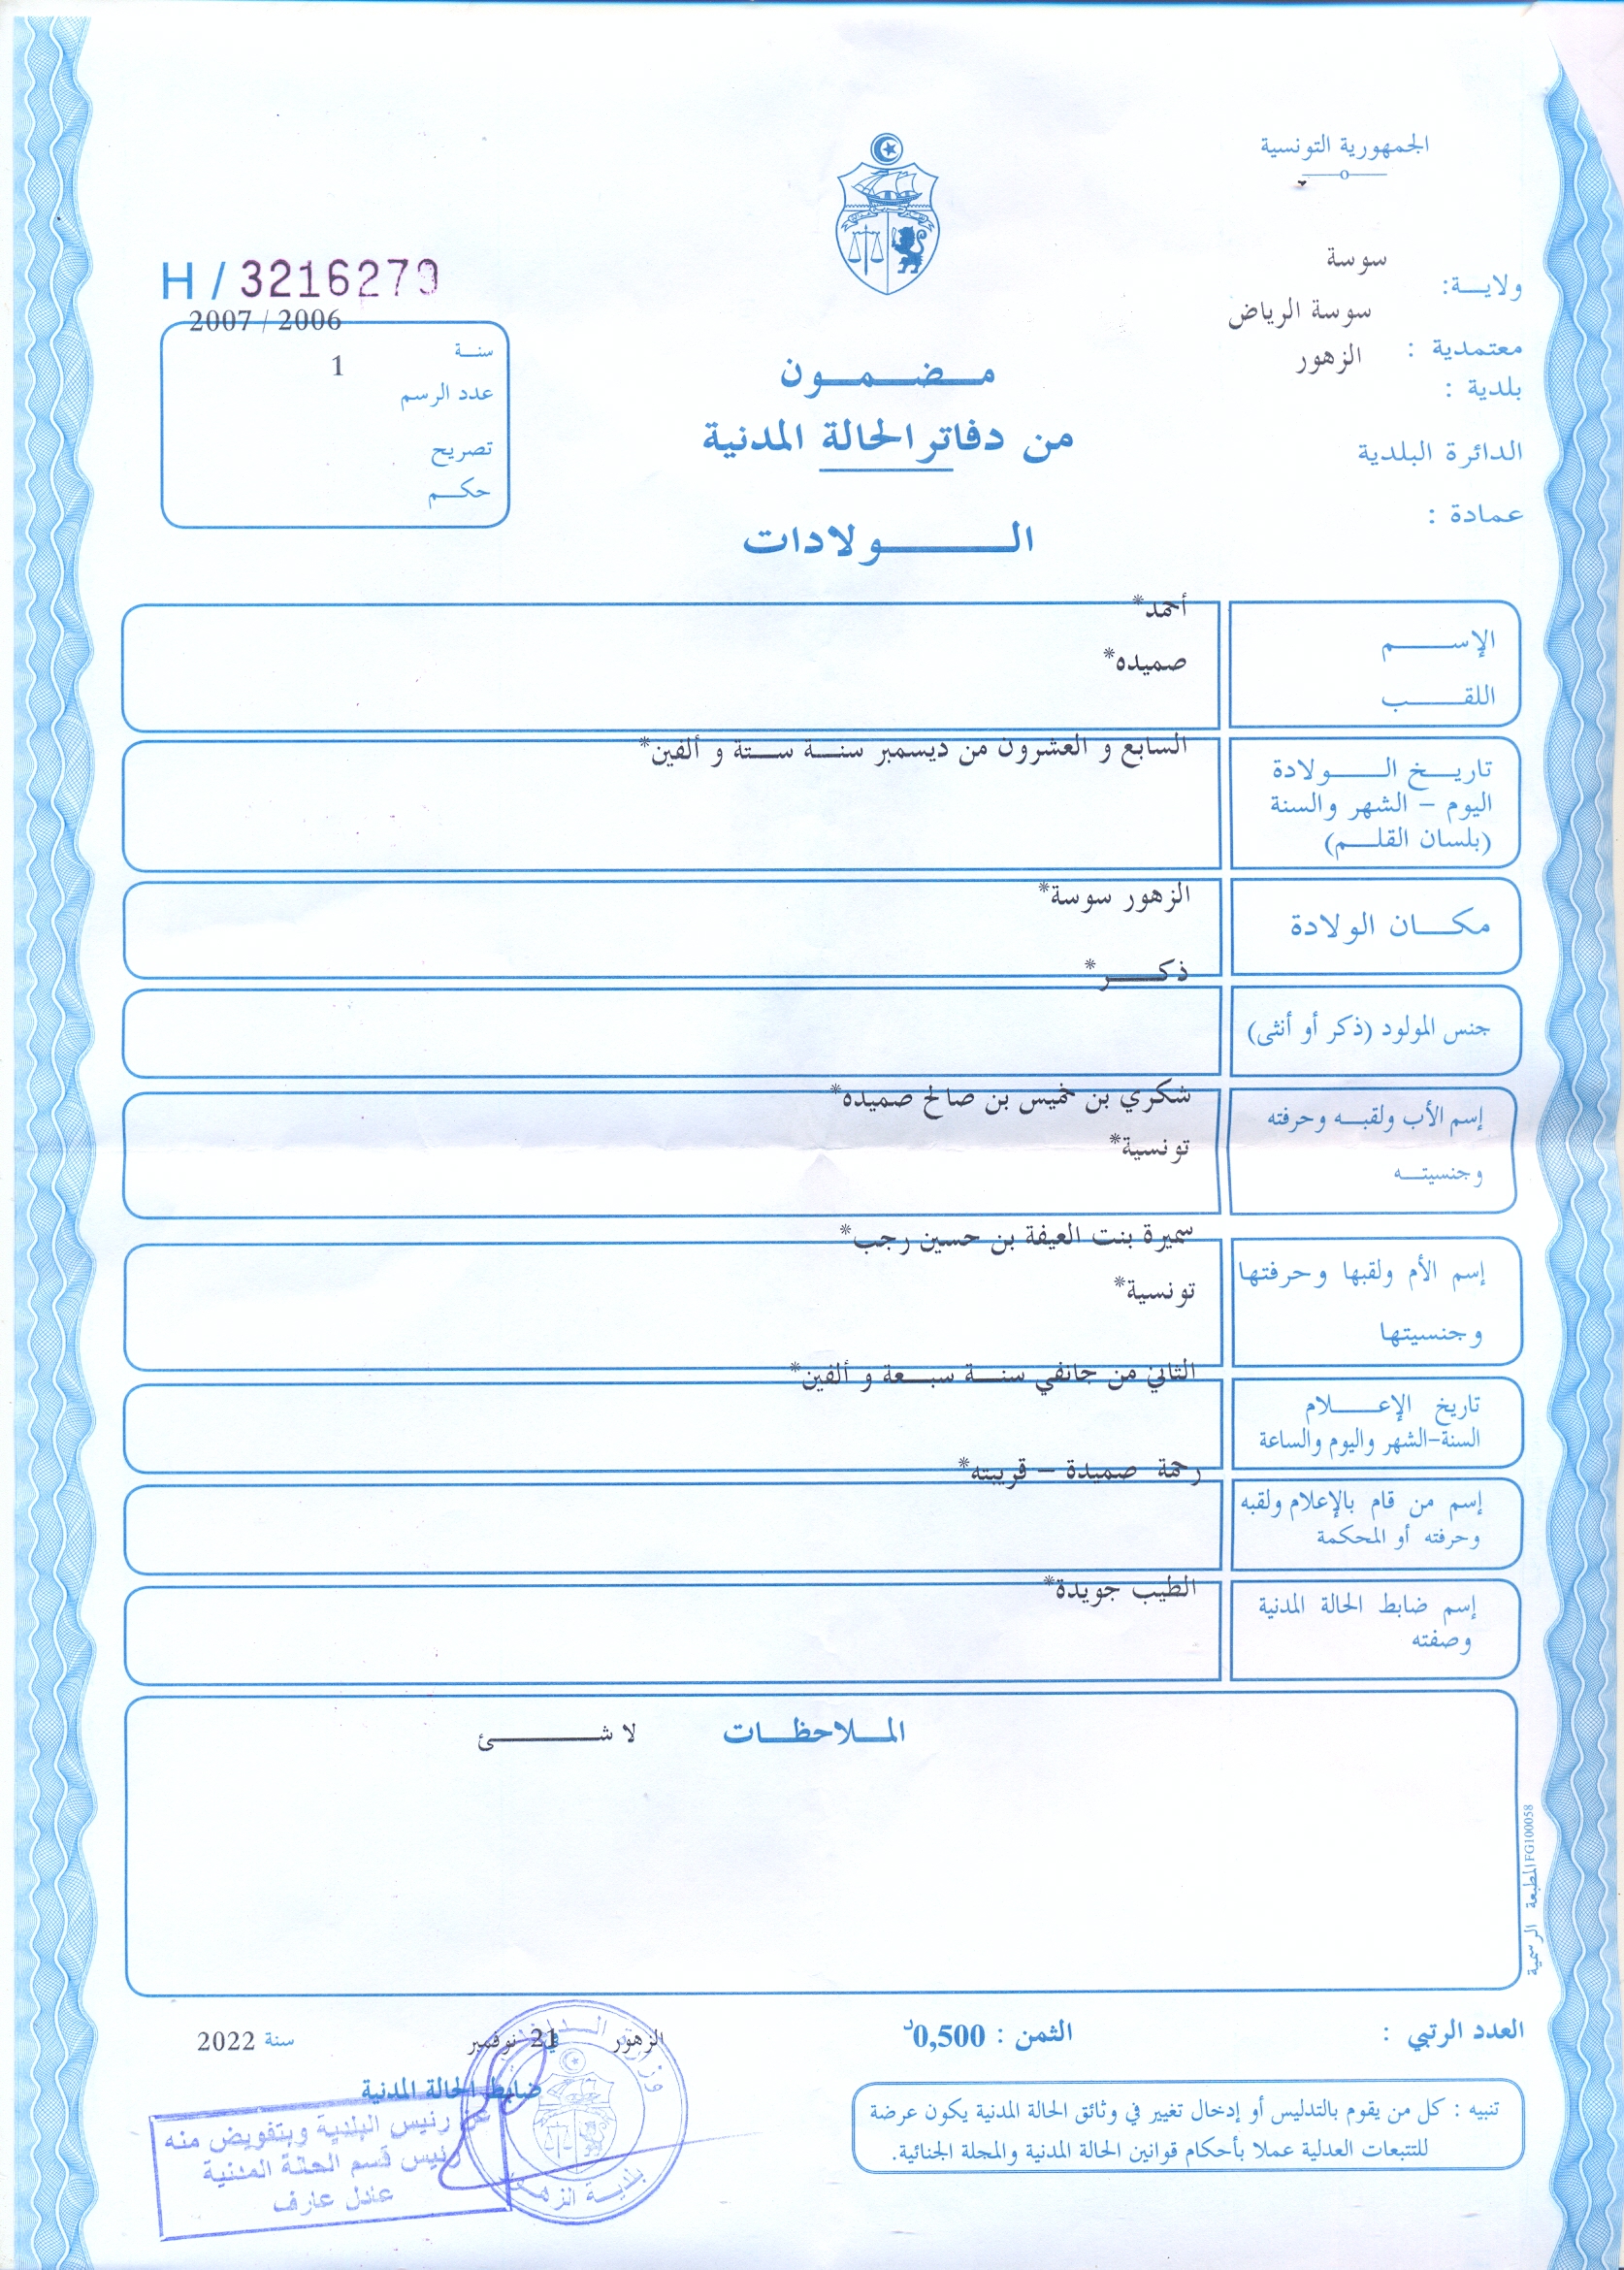 الجمهورية التونسية
ولايـــة: سوسة
معتمدية : سوسة الرياض
بلدية : الزهور
الدائرة البلدية
عمادة :
H / 3216279
2007 / 2006
سنـــة
1
عدد الرسم
تصريح
حكـــم
مـــضـــمـــون
من دفاتر الحالة المدنية
الـــــــولادات
الإســـــــم أحمد*
اللقـــــــب صميده*
تاريـــخ الـــــولادة السابع و العشرون من ديسمبر سنـــة ستـــة و ألفين*
اليوم - الشهر والسنة
(بلسان القلـــم)
مكـــان الولادة الزهور سوسة*
جنس المولود (ذكر أو أنثى) ذكـــــر*
إسم الأب ولقبـــه وحرفته شكري بن خميس بن صالح صميده*
وجنسيتـــه تونسية*
إسم الأم ولقبها وحرفتها سميرة بنت العيفة بن حسين رجب*
وجنسيتها تونسية*
تاريخ الإعـــــلام الثاني من جانفي سنـــة سبـــعة و ألفين*
السنة-الشهر واليوم والساعة
إسم من قام بالإعلام ولقبه رحمة صميدة – قريبته*
وحرفته أو المحكمة
إسم ضابط الحالة المدنية الطيب جويدة*
وصفته
المـــلاحظـــات لا شـــــــئ
المطبعة الرسمية FG100058
العدد الرتبي :
الثمن : 0,500د
الزهور في 21 نوفمبر سنة 2022
ضابط الحالة المدنية
عن رئيس البلدية وبتفويض منه
رئيس قسم الحالة المدنية
عادل عارف
بلدية الزهور
تنبيه : كل من يقوم بالتدليس أو إدخال تغيير في وثائق الحالة المدنية يكون عرضة
للتتبعات العدلية عملا بأحكام قوانين الحالة المدنية والمجلة الجنائية.